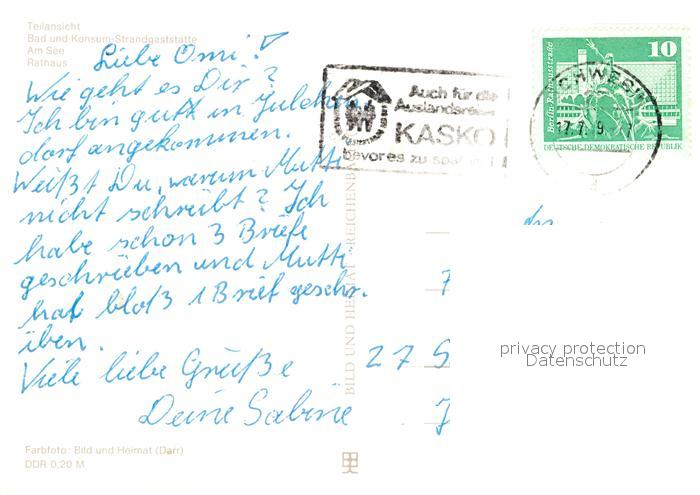 Teilansicht
Bad und Konsum-Strandgaststätte
Am See
Rathaus
Liebe Omi!
Wie geht es Dir?
Ich bin gutt in
dorf angekommen.
Weißt Du, warum Mutti
nicht schreibt? Ich
habe schon 3 Briefe
geschrieben und Mutti
hat bloß 1 Brief geschr.
iben.
Viele liebe Grüße
Deine Sabine
Farbfoto: Bild und Heimat (Darr)
DDR 0,20 M
BILD UND HEIMAT REICHENB
Auch für die
Auslandsreise
KASKO
bevor es zu spät ist
SCHWERIN
17.7.
10
Berlin, Rathausstraße
DEUTSCHE DEMOKRATISCHE REPUBLIK
7
27 S
J
privacy protection
Datenschutz